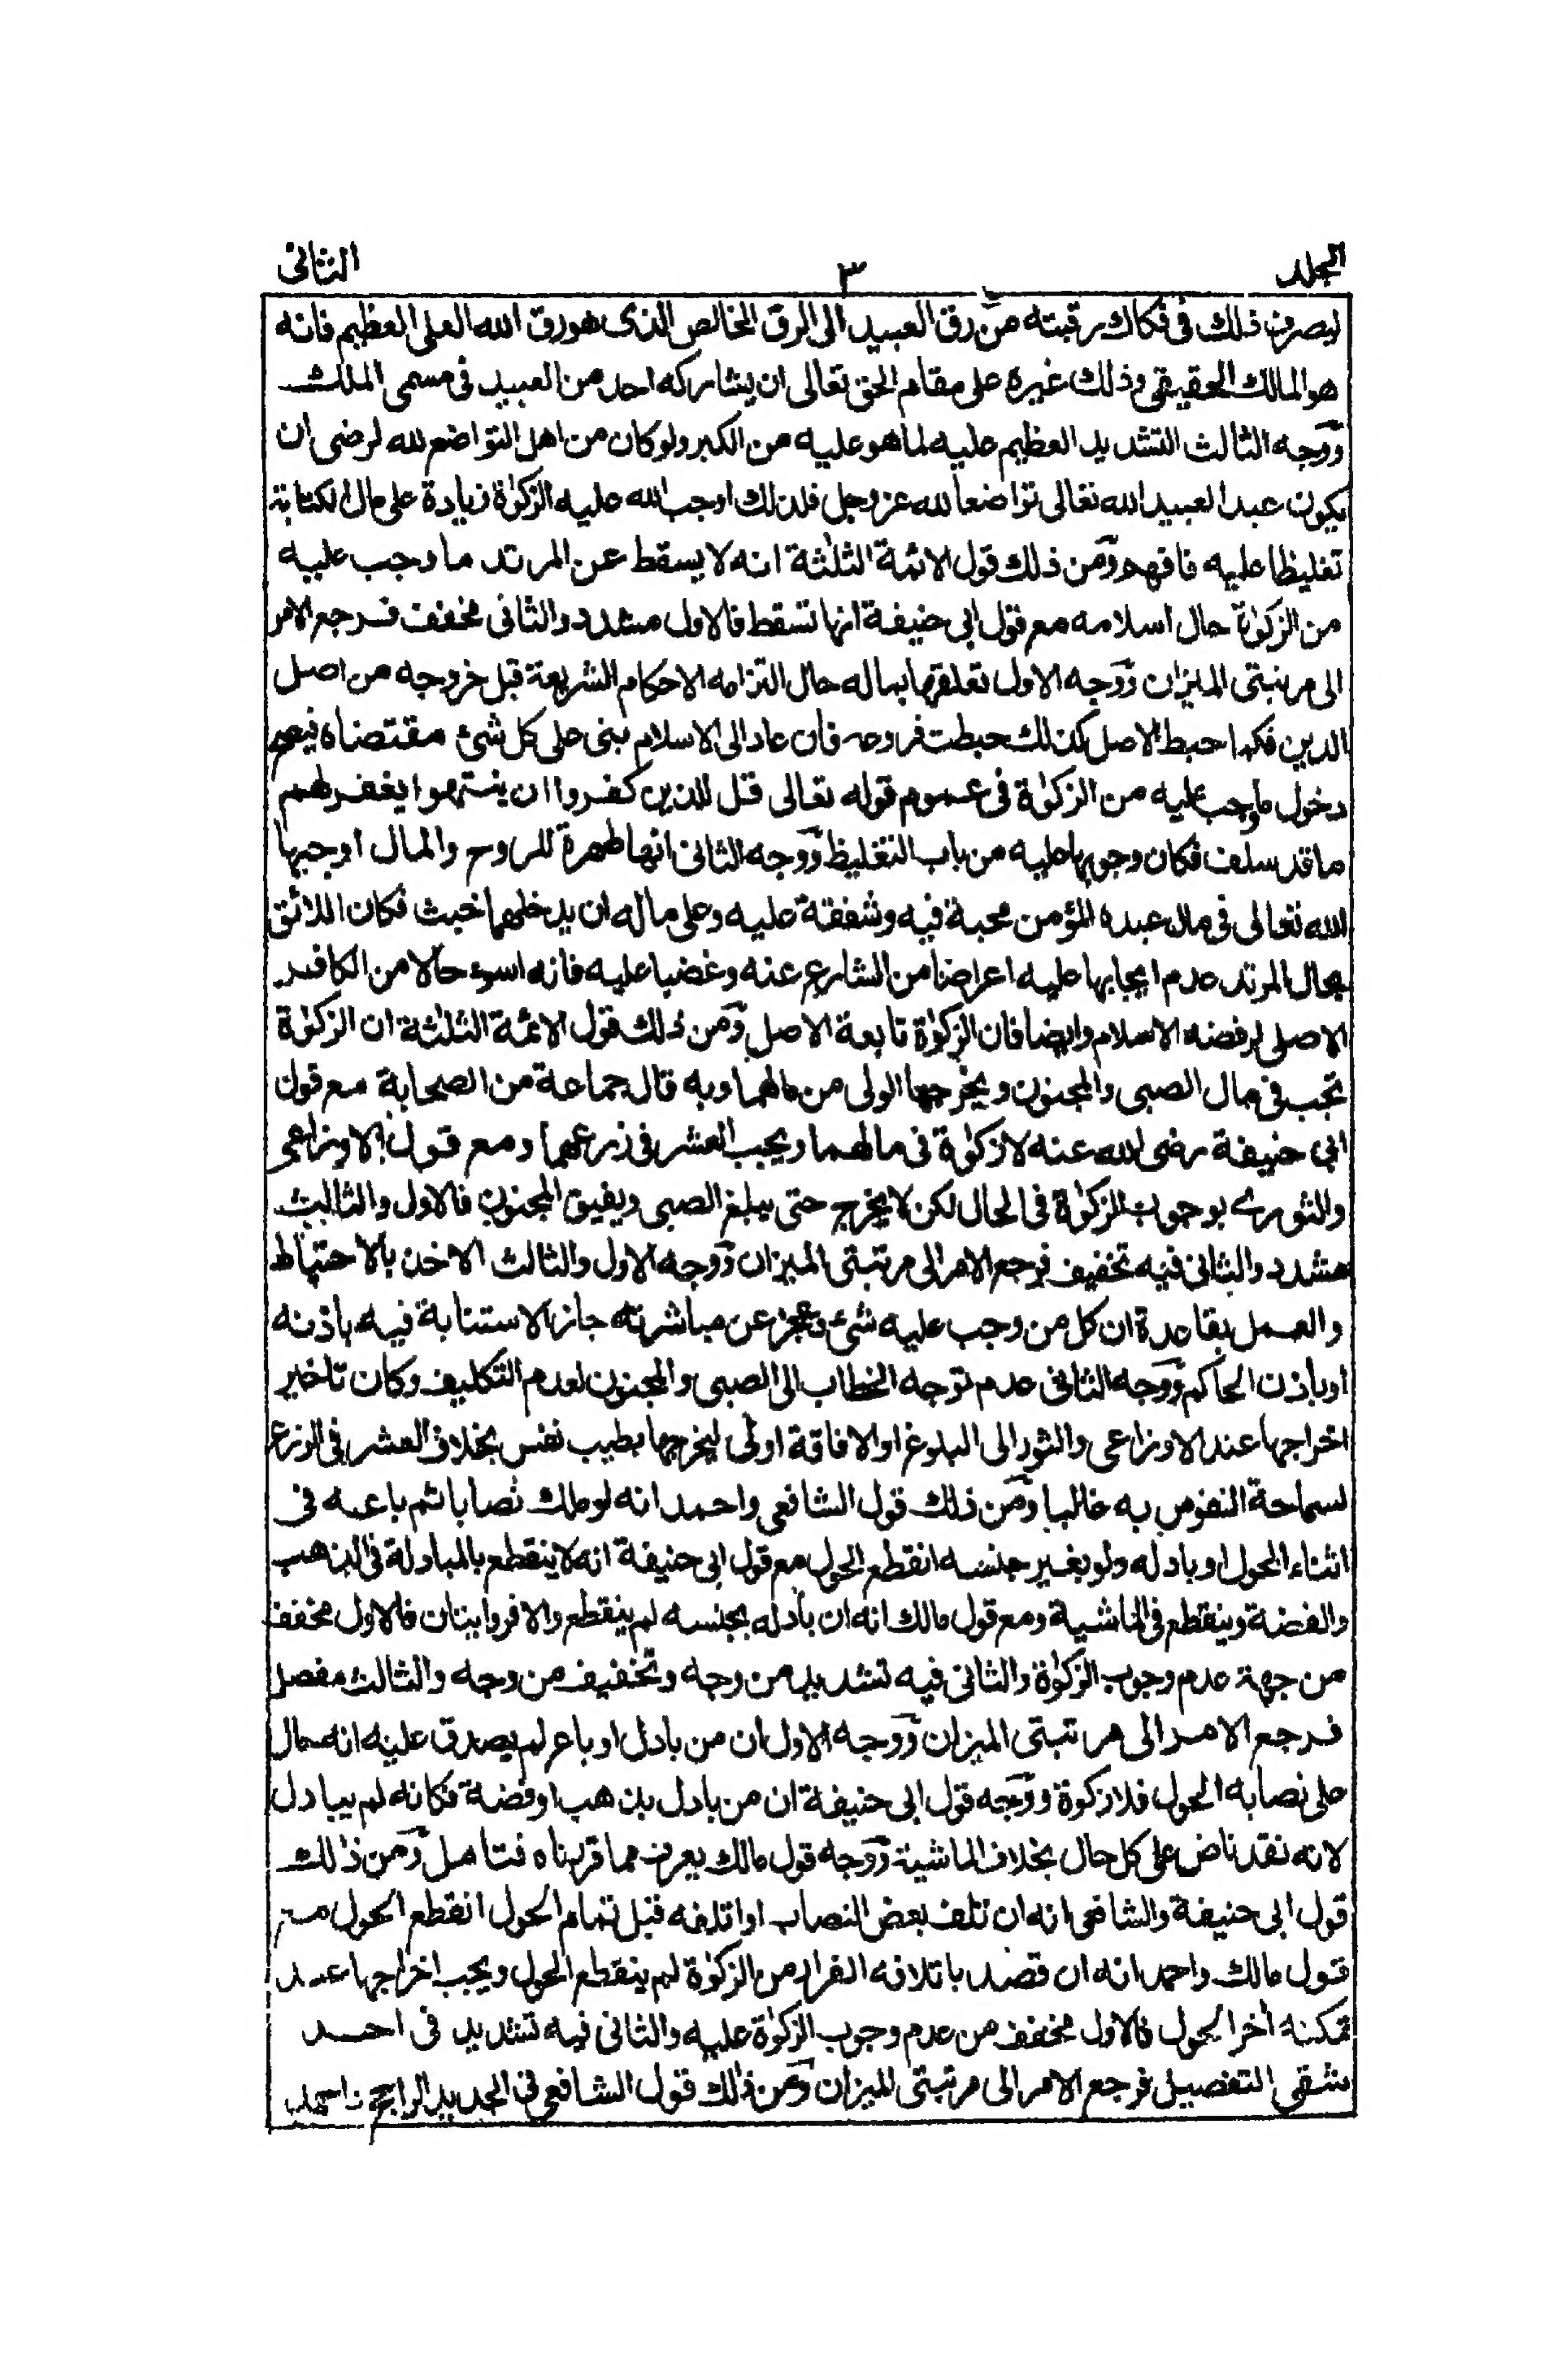 المجلد ٣ الثانى
ليصرف ذلك فى فكاك رقبته من رق العبيد الى الرق الخالص الذى هو رق الله العلى العظيم فانه
هو المالك الحقيقى وذلك غيرة على مقام الحق تعالى ان يشاركه احد من العبيد فى مسمى الملك
ووجه الثالث التشديد العظيم عليه لما هو عليه من الكبر ولو كان من اهل التواضع لله لرضى ان
يكون عبد العبيد الله تعالى تواضعا لله عز وجل فلذلك اوجب الله عليه الزكوٰة زيادة على مال الكتابة
تغليظا عليه فافهم ومن ذلك قول الائمة الثلٰثة انه لا يسقط عن المرتد ما وجب عليه
من الزكوٰة حال اسلامه مع قول ابى حنيفة انها تسقط فالاول مشدد والثانى مخفف فرجع الامر
الى مرتبتى الميزان ووجه الاول تعلقها بماله حال التزامه الاحكام الشريعة قبل خروجه من اصل
الدين فكما حبط الاصل كذلك حبطت فروعه فان عاد الى الاسلام بنى على كل شئ مقتضاه فيعم
دخول ما وجب عليه من الزكوٰة فى عموم قوله تعالى قل للذين كفروا ان ينتهوا يغفر لهم
ما قد سلف فكان وجوبها عليه من باب التغليظ ووجه الثانى انها طهرة للروح والمال اوجبها
الله تعالى فى مال عبده المؤمن محبة فيه وشفقة عليه وعلى ماله ان يدخلهما خبث فكان اللائق
بحال المرتد عدم ايجابها عليه اعراضا من الشارع عنه وغضبا عليه فانه اسوء حالا من الكافر
الاصلى لرفضه الاسلام وايضا فان الزكوٰة تابعة الاصل ومن ذلك قول الائمة الثلٰثة ان الزكوٰة
تجب فى مال الصبى والمجنون ويخرجها الولى من مالهما وبه قال جماعة من الصحابة مع قول
ابى حنيفة رضى الله عنه لا زكوٰة فى مالهما ويجب العشر فى زرعهما ومع قول الاوزاعى
والثورى بوجوب الزكوٰة فى الحال لكن لا يخرج حتى يبلغ الصبى ويفيق المجنون فالاول والثالث
مشدد والثانى فيه تخفيف فرجع الامر الى مرتبتى الميزان ووجه الاول والثالث الاخذ بالاحتياط
والعمل بقاعدة ان كل من وجب عليه شئ وعجز عن مباشرته جاز الاستنابة فيه باذنه
او باذن الحاكم ووجه الثانى عدم توجه الخطاب الى الصبى والمجنون لعدم التكليف وكان تاخير
اخراجها عند الاوزاعى والثور الى البلوغ او الافاقة اولى ليخرجها بطيب نفس بخلاف العشر فى الزرع
لسماحة النفوس به غالبا ومن ذلك قول الشافعى واحمد انه لو ملك نصابا ثم باعه فى
اثناء الحول او بادله ولو بغير جنسه انقطع الحول مع قول ابى حنيفة انه لا ينقطع بالمبادلة فى الذهب
والفضة وينقطع فى الماشية ومع قول مالك انه ان بادله بجنسه لم ينقطع والا فروايتان فالاول مخفف
من جهة عدم وجوب الزكوٰة والثانى فيه تشديد من وجه وتخفيف من وجه والثالث مفصل
فرجع الامر الى مرتبتى الميزان ووجه الاول ان من بادل او باع لم يصدق عليه انه حال
على نصابه الحول فلا زكوة ووجه قول ابى حنيفة ان من بادل بذهب او فضة فكانه لم يبادل
لانه نقد ناض على كل حال بخلاف الماشية ووجه قول مالك يعرف مما قررناه فتامل ومن ذلك
قول ابى حنيفة والشافعى انه ان تلف بعض النصاب او اتلفه قبل تمام الحول انقطع الحول مع
قول مالك واحمد انه ان قصد باتلافه الفرار من الزكوٰة لم ينقطع الحول ويجب اخراجها عند
تمكنه اخر الحول فالاول مخفف من عدم وجوب الزكوٰة عليه والثانى فيه تشديد فى احد
شقى التفصيل فرجع الامر الى مرتبتى الميزان ومن ذلك قول الشافعى فى الجديد الراجح